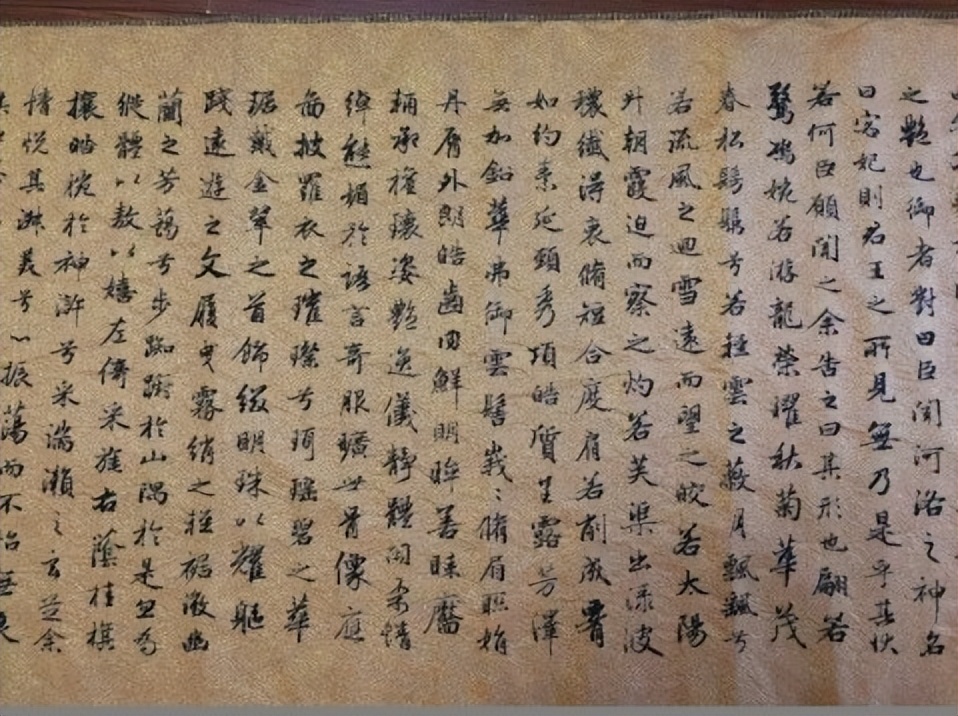 之艷也御者對曰臣聞河洛之神名
曰宓妃則君王之所見無乃是乎其狀
若何臣願聞之余告之曰其形也翩若
驚鴻婉若游龍榮曜秋菊華茂
春松髣髴兮若輕雲之蔽月飄飄兮
若流風之迴雪遠而望之皎若太陽
升朝霞迫而察之灼若芙渠出淥波
穠纖得衷脩短合度肩若削成腰
如約素延頸秀項皓質呈露芳澤
無加鉛華弗御雲髻峩〻脩眉聯娟
丹脣外朗皓齒内鮮明眸善睞靨
輔承權瓌姿艷逸儀靜體閑柔情
綽態媚於語言奇服曠世骨像應
圖披羅衣之璀璨兮珥瑤碧之華
琚戴金翠之首飾綴明珠以耀軀
踐遠遊之文履曳霧綃之輕裾微幽
蘭之芳藹兮步踟躕於山隅於是忽焉
縱體以敖以嬉左倚采旄右蔭桂旗
攘皓捥於神滸兮采湍瀨之玄芝余
情悅其淑美兮心振蕩而不怡無良